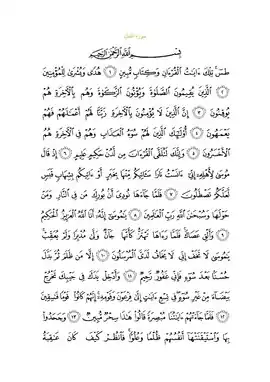 سورة النمل
بِسْمِ ٱللَّهِ ٱلرَّحْمَٰنِ ٱلرَّحِيمِ
طسٓ تِلْكَ ءَايَٰتُ ٱلْقُرْءَانِ وَكِتَابٍ مُّبِينٍ ﴿١﴾ هُدًى وَبُشْرَىٰ لِلْمُؤْمِنِينَ
﴿٢﴾ ٱلَّذِينَ يُقِيمُونَ ٱلصَّلَوٰةَ وَيُؤْتُونَ ٱلزَّكَوٰةَ وَهُم بِٱلْءَاخِرَةِ هُمْ
يُوقِنُونَ ﴿٣﴾ إِنَّ ٱلَّذِينَ لَا يُؤْمِنُونَ بِٱلْءَاخِرَةِ زَيَّنَّا لَهُمْ أَعْمَٰلَهُمْ فَهُمْ
يَعْمَهُونَ ﴿٤﴾ أُو۟لَٰٓئِكَ ٱلَّذِينَ لَهُمْ سُوٓءُ ٱلْعَذَابِ وَهُمْ فِى ٱلْءَاخِرَةِ هُمُ
ٱلْأَخْسَرُونَ ﴿٥﴾ وَإِنَّكَ لَتُلَقَّى ٱلْقُرْءَانَ مِن لَّدُنْ حَكِيمٍ عَلِيمٍ ﴿٦﴾ إِذْ قَالَ
مُوسَىٰ لِأَهْلِهِۦٓ إِنِّىٓ ءَانَسْتُ نَارًا سَـَٔاتِيكُم مِّنْهَا بِخَبَرٍ أَوْ ءَاتِيكُم بِشِهَابٍ قَبَسٍ
لَّعَلَّكُمْ تَصْطَلُونَ ﴿٧﴾ فَلَمَّا جَآءَهَا نُودِىَ أَنۢ بُورِكَ مَن فِى ٱلنَّارِ وَمَنْ
حَوْلَهَا وَسُبْحَٰنَ ٱللَّهِ رَبِّ ٱلْعَٰلَمِينَ ﴿٨﴾ يَٰمُوسَىٰٓ إِنَّهُۥٓ أَنَا ٱللَّهُ ٱلْعَزِيزُ ٱلْحَكِيمُ
﴿٩﴾ وَأَلْقِ عَصَاكَ فَلَمَّا رَءَاهَا تَهْتَزُّ كَأَنَّهَا جَآنٌّ وَلَّىٰ مُدْبِرًا وَلَمْ يُعَقِّبْ
يَٰمُوسَىٰ لَا تَخَفْ إِنِّى لَا يَخَافُ لَدَىَّ ٱلْمُرْسَلُونَ ﴿١٠﴾ إِلَّا مَن ظَلَمَ ثُمَّ بَدَّلَ
حُسْنًۢا بَعْدَ سُوٓءٍ فَإِنِّى غَفُورٌ رَّحِيمٌ ﴿١١﴾ وَأَدْخِلْ يَدَكَ فِى جَيْبِكَ تَخْرُجْ
بَيْضَآءَ مِنْ غَيْرِ سُوٓءٍ فِى تِسْعِ ءَايَٰتٍ إِلَىٰ فِرْعَوْنَ وَقَوْمِهِۦٓ إِنَّهُمْ كَانُوا۟ قَوْمًا فَٰسِقِينَ
﴿١٢﴾ فَلَمَّا جَآءَتْهُمْ ءَايَٰتُنَا مُبْصِرَةً قَالُوا۟ هَٰذَا سِحْرٌ مُّبِينٌ ﴿١٣﴾ وَجَحَدُوا۟
بِهَا وَٱسْتَيْقَنَتْهَآ أَنفُسُهُمْ ظُلْمًا وَعُلُوًّا فَٱنظُرْ كَيْفَ كَانَ عَٰقِبَةُ